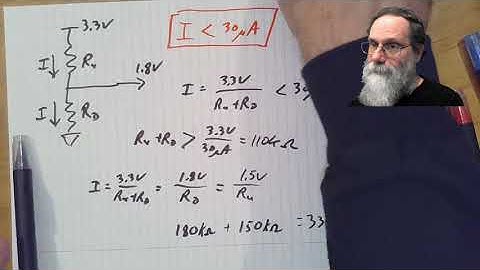 3.3V
I < 30µA
I ↓ Ru
1.8V
I ↓ RD
I = 3.3V / Ru + RD < 3
Ru + RD > 3.3V / 30µA = 110kΩ
I = 3.3V / Ru + RD = 1.8V / RD = 1.5V / Ru
180kΩ + 150kΩ = 33